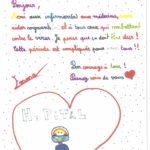 Bonjour,
Merci aux infirmier(es) aux médecins, aux
aides soignants... et à tous ceux qui combattent
contre le virus. Je pense que ça doit être dur !
Cette période est compliquée pour tous !!
Bon courage à tous !
Prenez soin de vous
HOPITAL